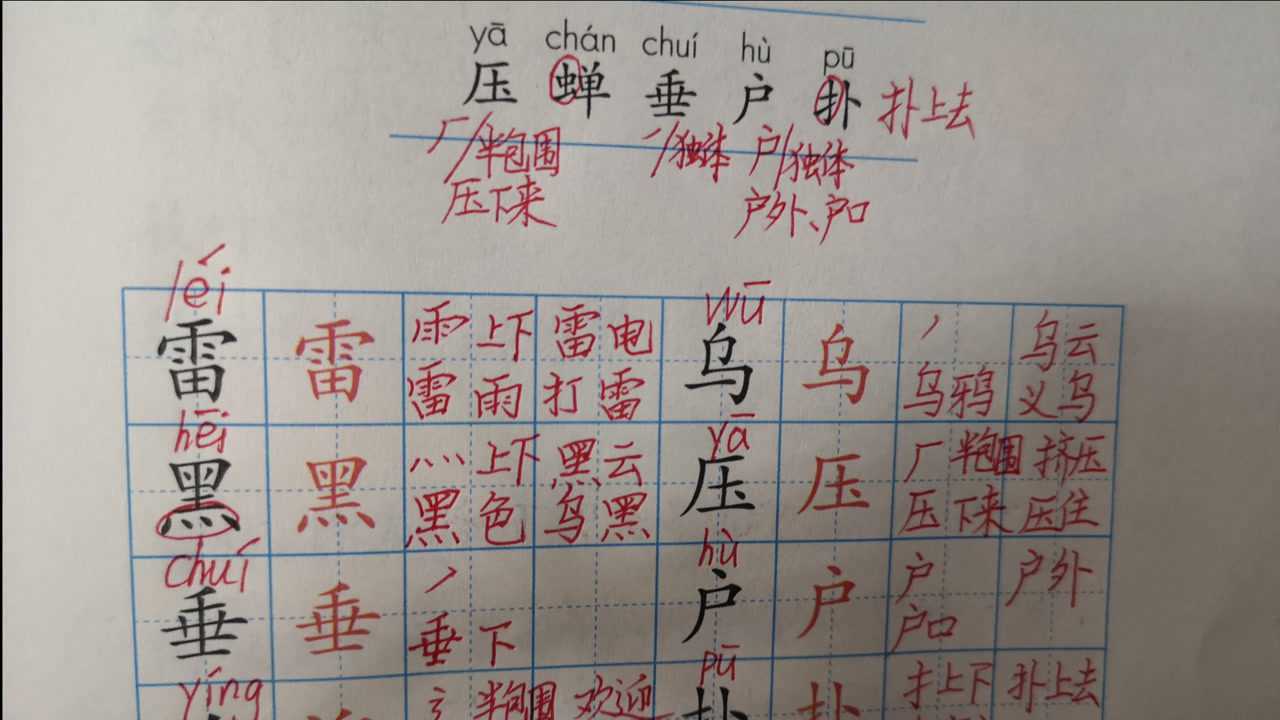 yā chán chuí hù pū
压 蝉 垂 户 扑 扑上去
厂/半包围 丿/独体 户/独体
压下来 户外、户口
léi wū
雷 雷 雨 上下 雷电 乌 乌 丿 乌云
雷雨 打雷 乌鸦 义乌
hēi yā
黑 黑 灬 上下 黑云 压 压 厂 半包围 挤压
黑色 乌黑 压下来 压住
chuí hù
垂 垂 丿 户 户 户 户外
垂下 户口
yíng pū
半包围 欢迎 扑 扑 扌 上下 扑上去